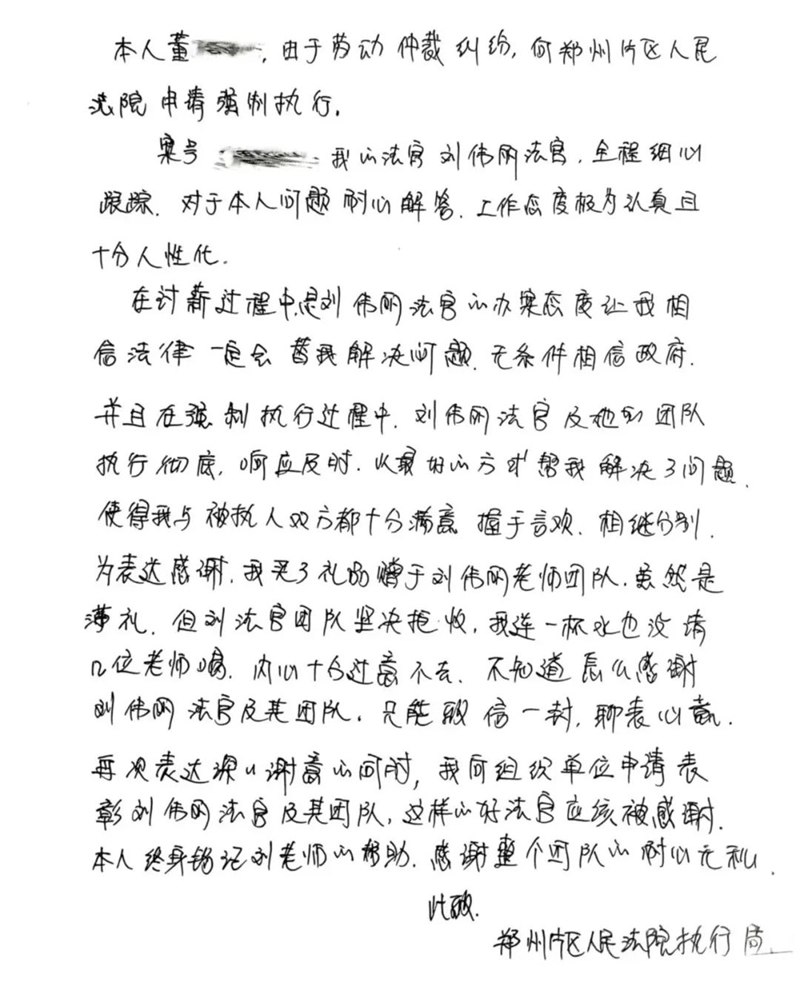 本人董 ,由于劳动仲裁纠纷,向郑州片区人民
法院申请强制执行.
案号 .我的法官刘伟网法官.全程细心
跟踪.对于本人问题耐心解答.工作态度极为认真且
十分人性化.
在讨薪过程中,是刘伟网法官的办案态度让我相
信法律一定会替我解决问题.无条件相信政府.
并且在强制执行过程中.刘伟网法官及他的团队
执行彻底,响应及时.以最好的方式帮我解决了问题.
使得我与被执人双方都十分满意 握手言欢.相继分别.
为表达感谢.我买了礼品赠于刘伟网老师团队.虽然是
薄礼.但刘法官团队坚决拒收.我连一杯水也没请
几位老师喝.内心十分过意不去.不知道怎么感谢
刘伟网法官及其团队.只能致信一封,聊表心意.
再次表达深的谢意的同时,我向组织单位申请表
彰刘伟网法官及其团队,这样的好法官应该被感谢.
本人终身铭记刘老师的帮助.感谢整个团队的耐心无私.
此致.
郑州片区人民法院执行局